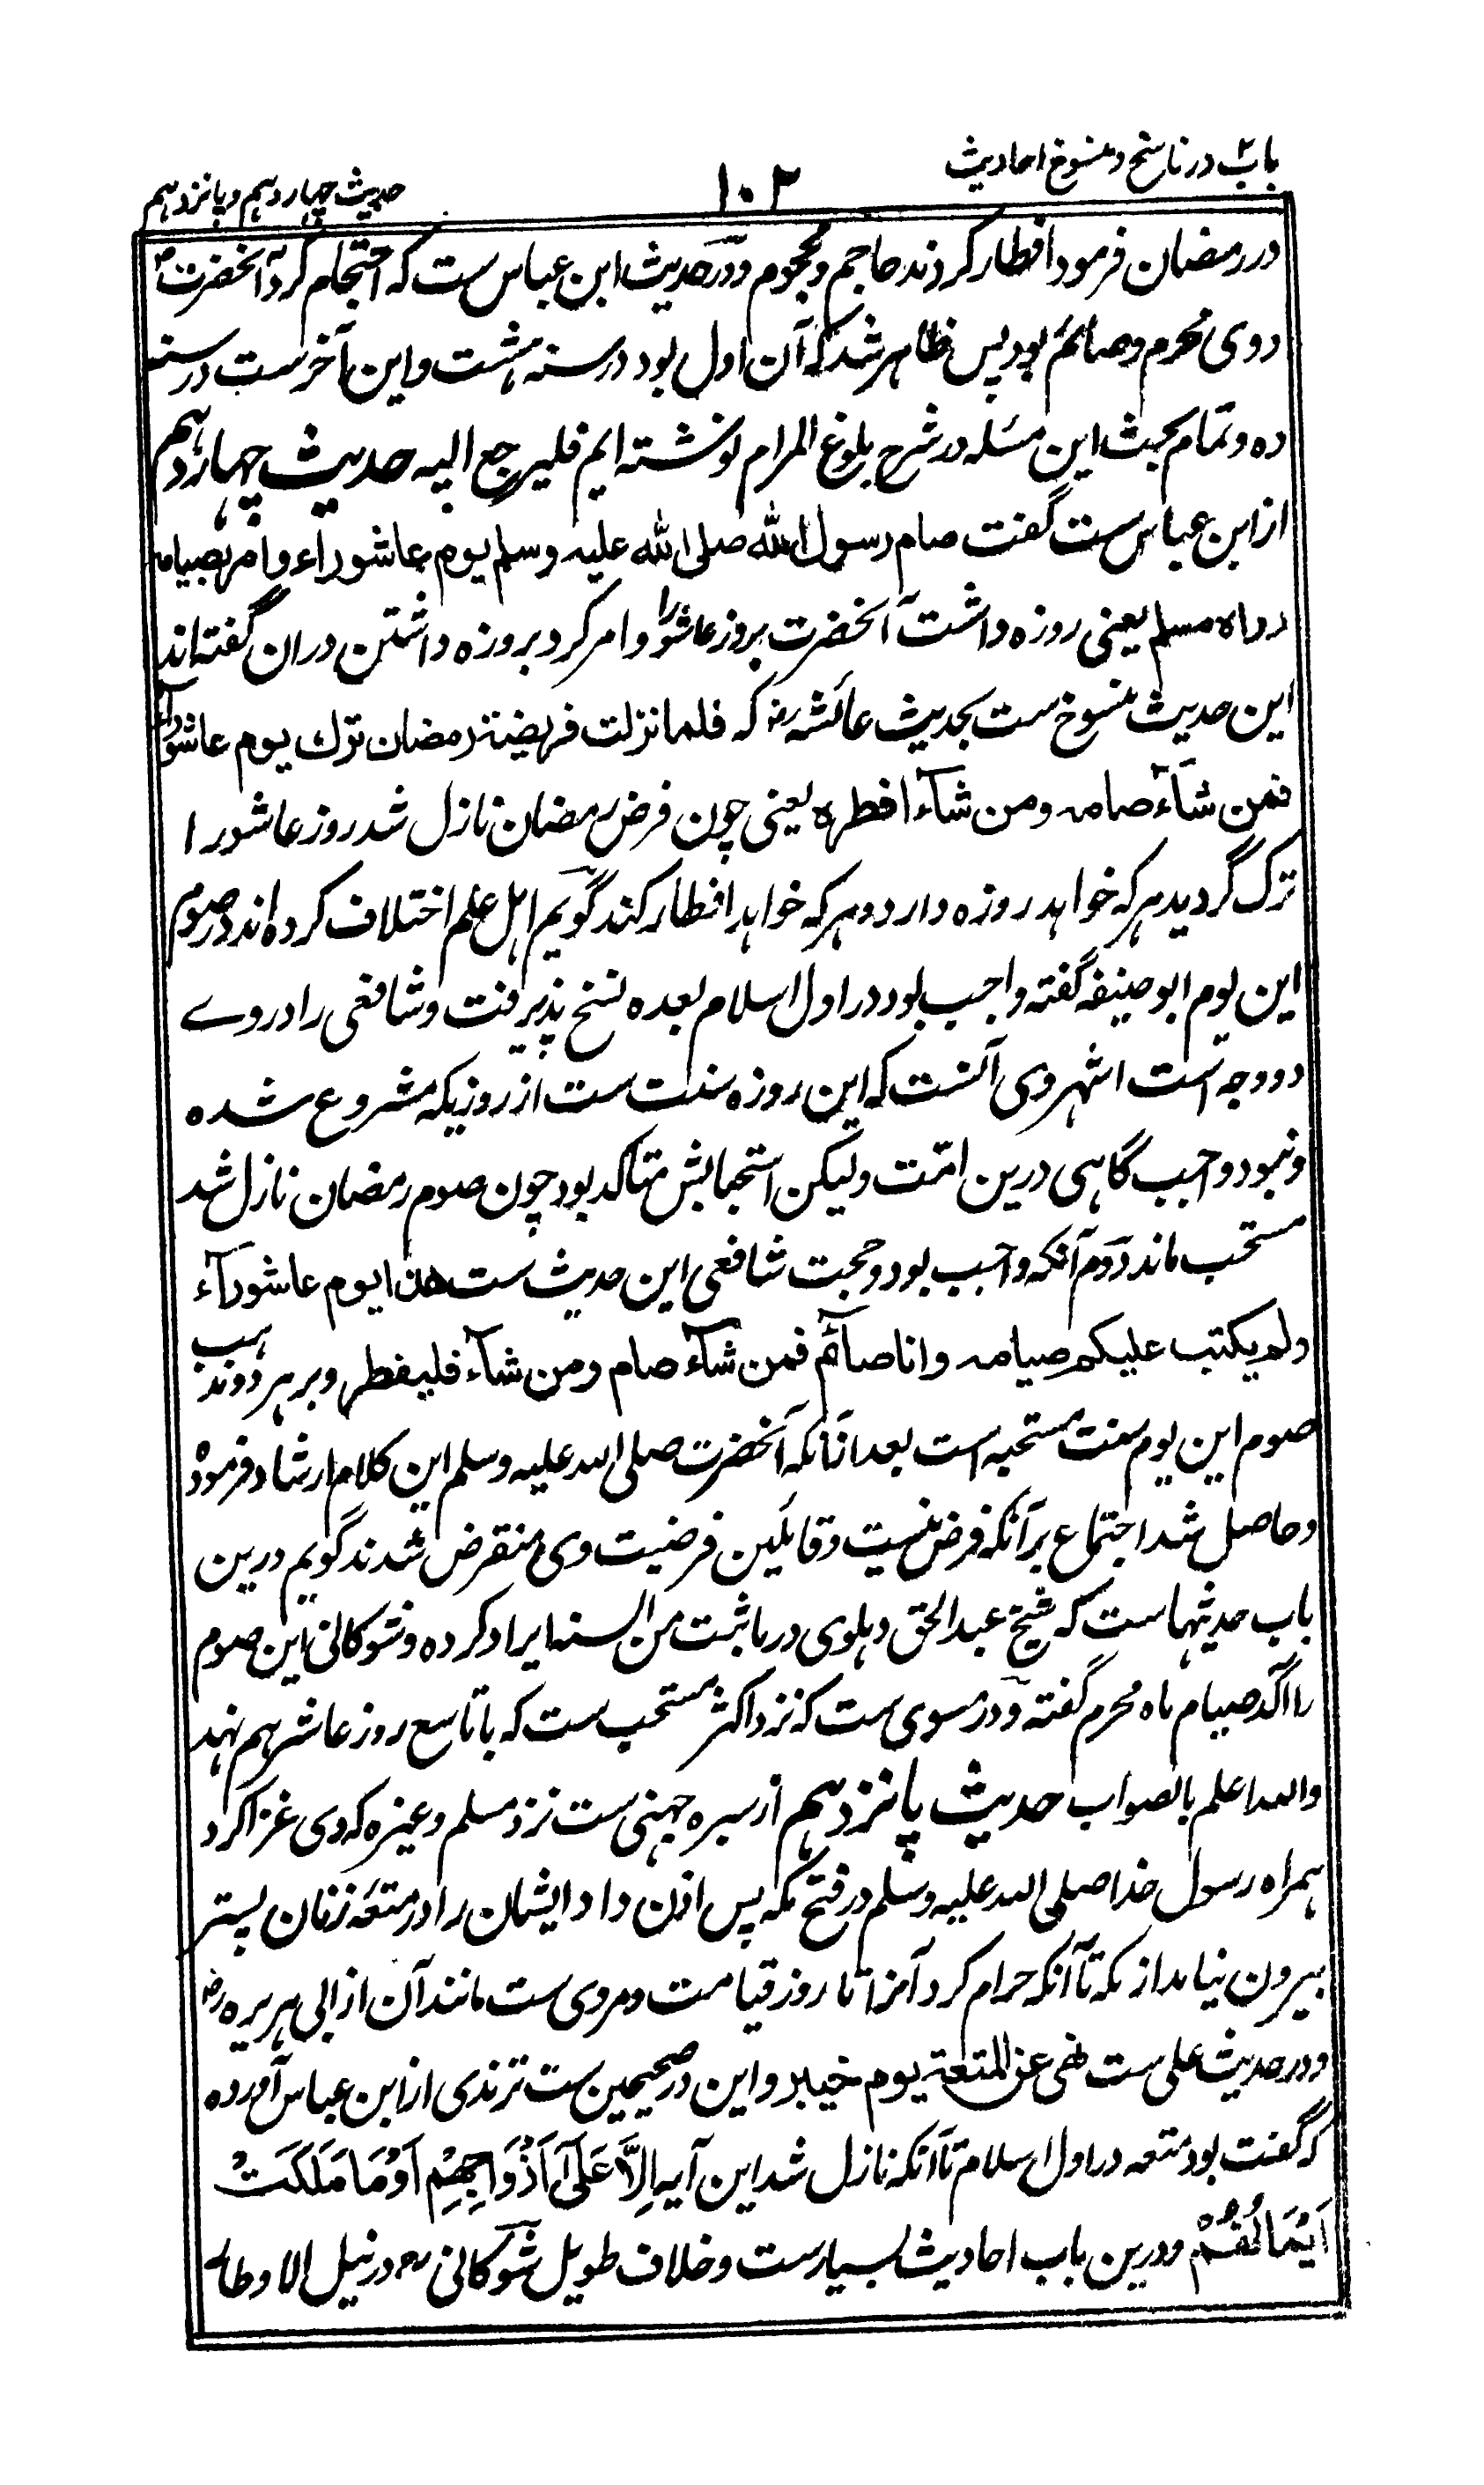 باب۲ در ناسخ و منسوخ احادیث
۱۰۲
حدیث چهاردهم و پانزدهم
در رمضان فرمود افطار کردند حاجم و محجوم و در حدیث ابن عباس ست که احتجام کرد آنحضرت
و وی محرم و صائم بود پس ظاهر شد که آن اول بود در سنه هشت و این آخر ست در سنه
ده و تمام بحث این مسئله در شرح بلوغ المرام نوشته ایم فلیرجع الیه حدیث چهاردهم
از ابن عباس ست گفت صام رسول الله صلی الله علیه وسلم یوم عاشوراء وامر بصیامه
رواه مسلم یعنی روزه داشت آنحضرت بروز عاشورا و امر کرد بروزه داشتن دران گفته اند
این حدیث منسوخ ست بحدیث عائشه رض که فلما نزلت فریضة رمضان ترك یوم عاشوراء
فمن شآء صامه ومن شآء افطره یعنی چون فرض رمضان نازل شد روز عاشورا
ترک گردید هر که خواهد روزه دارد و هر که خواهد افطار کند گویم اهل علم اختلاف کرده اند در صوم
این یوم ابو حنیفه گفته واجب بود در اول اسلام بعده نسخ پذیرفت و شافعی را دروے
دو وجه است اشهر وی آنست که این روزه سنت ست از روزیکه مشروع شده
و نبود واجب گاهی درین امّت ولیکن استحبابش متاکد بود چون صوم رمضان نازل شد
مستحب ماند دوم آنکه واجب بود و حجت شافعی این حدیث ست هذا یوم عاشورآء
ولم یکتب علیکم صیامه وانا صآئم فمن شآء صام ومن شآء فلیفطر و بر هر دو مذهب
صوم این یوم سنت مستحبه است بعد ازانکه آنحضرت صلی الله علیه وسلم این کلام ارشاد فرموده
و حاصل شد اجتماع بر آنکه فرض نیست و قایلین فرضیت وی منقرض شدند گویم درین
باب حدیثهاست که شیخ عبد الحق دهلوی در ما ثبت من السنه ایراد کرده و شوکانی این صوم
را آکد صیام ماه محرم گفته و در مسوی ست که نزد اکثر مستحب ست که با تاسع روز عاشر هم نهد
والله اعلم بالصواب حدیث پانزدهم از سبره جهنی ست نزد مسلم و غیره که وی غزا کرد
همراه رسول خدا صلی الله علیه وسلم در فتح مکه پس اذن داد ایشان را در متعه زنان پستر
بیرون نیامد از مکه تا آنکه حرام کرد آنرا تا روز قیامت و مروی ست مانند آن از ابی هریره رض
و در حدیث علی ست نهی عن المتعة یوم خیبر و این در صحیحین ست ترمذی از ابن عباس آورده
که گفت بود متعه در اول اسلام تا آنکه نازل شد این آیه اِلَّا عَلٰٓی اَزْوَاجِهِمْ اَوْ مَا مَلَكَتْ
اَیْمَانُهُمْ و درین باب احادیث بسیارست و خلاف طویل شوکانی در نیل الاوطار